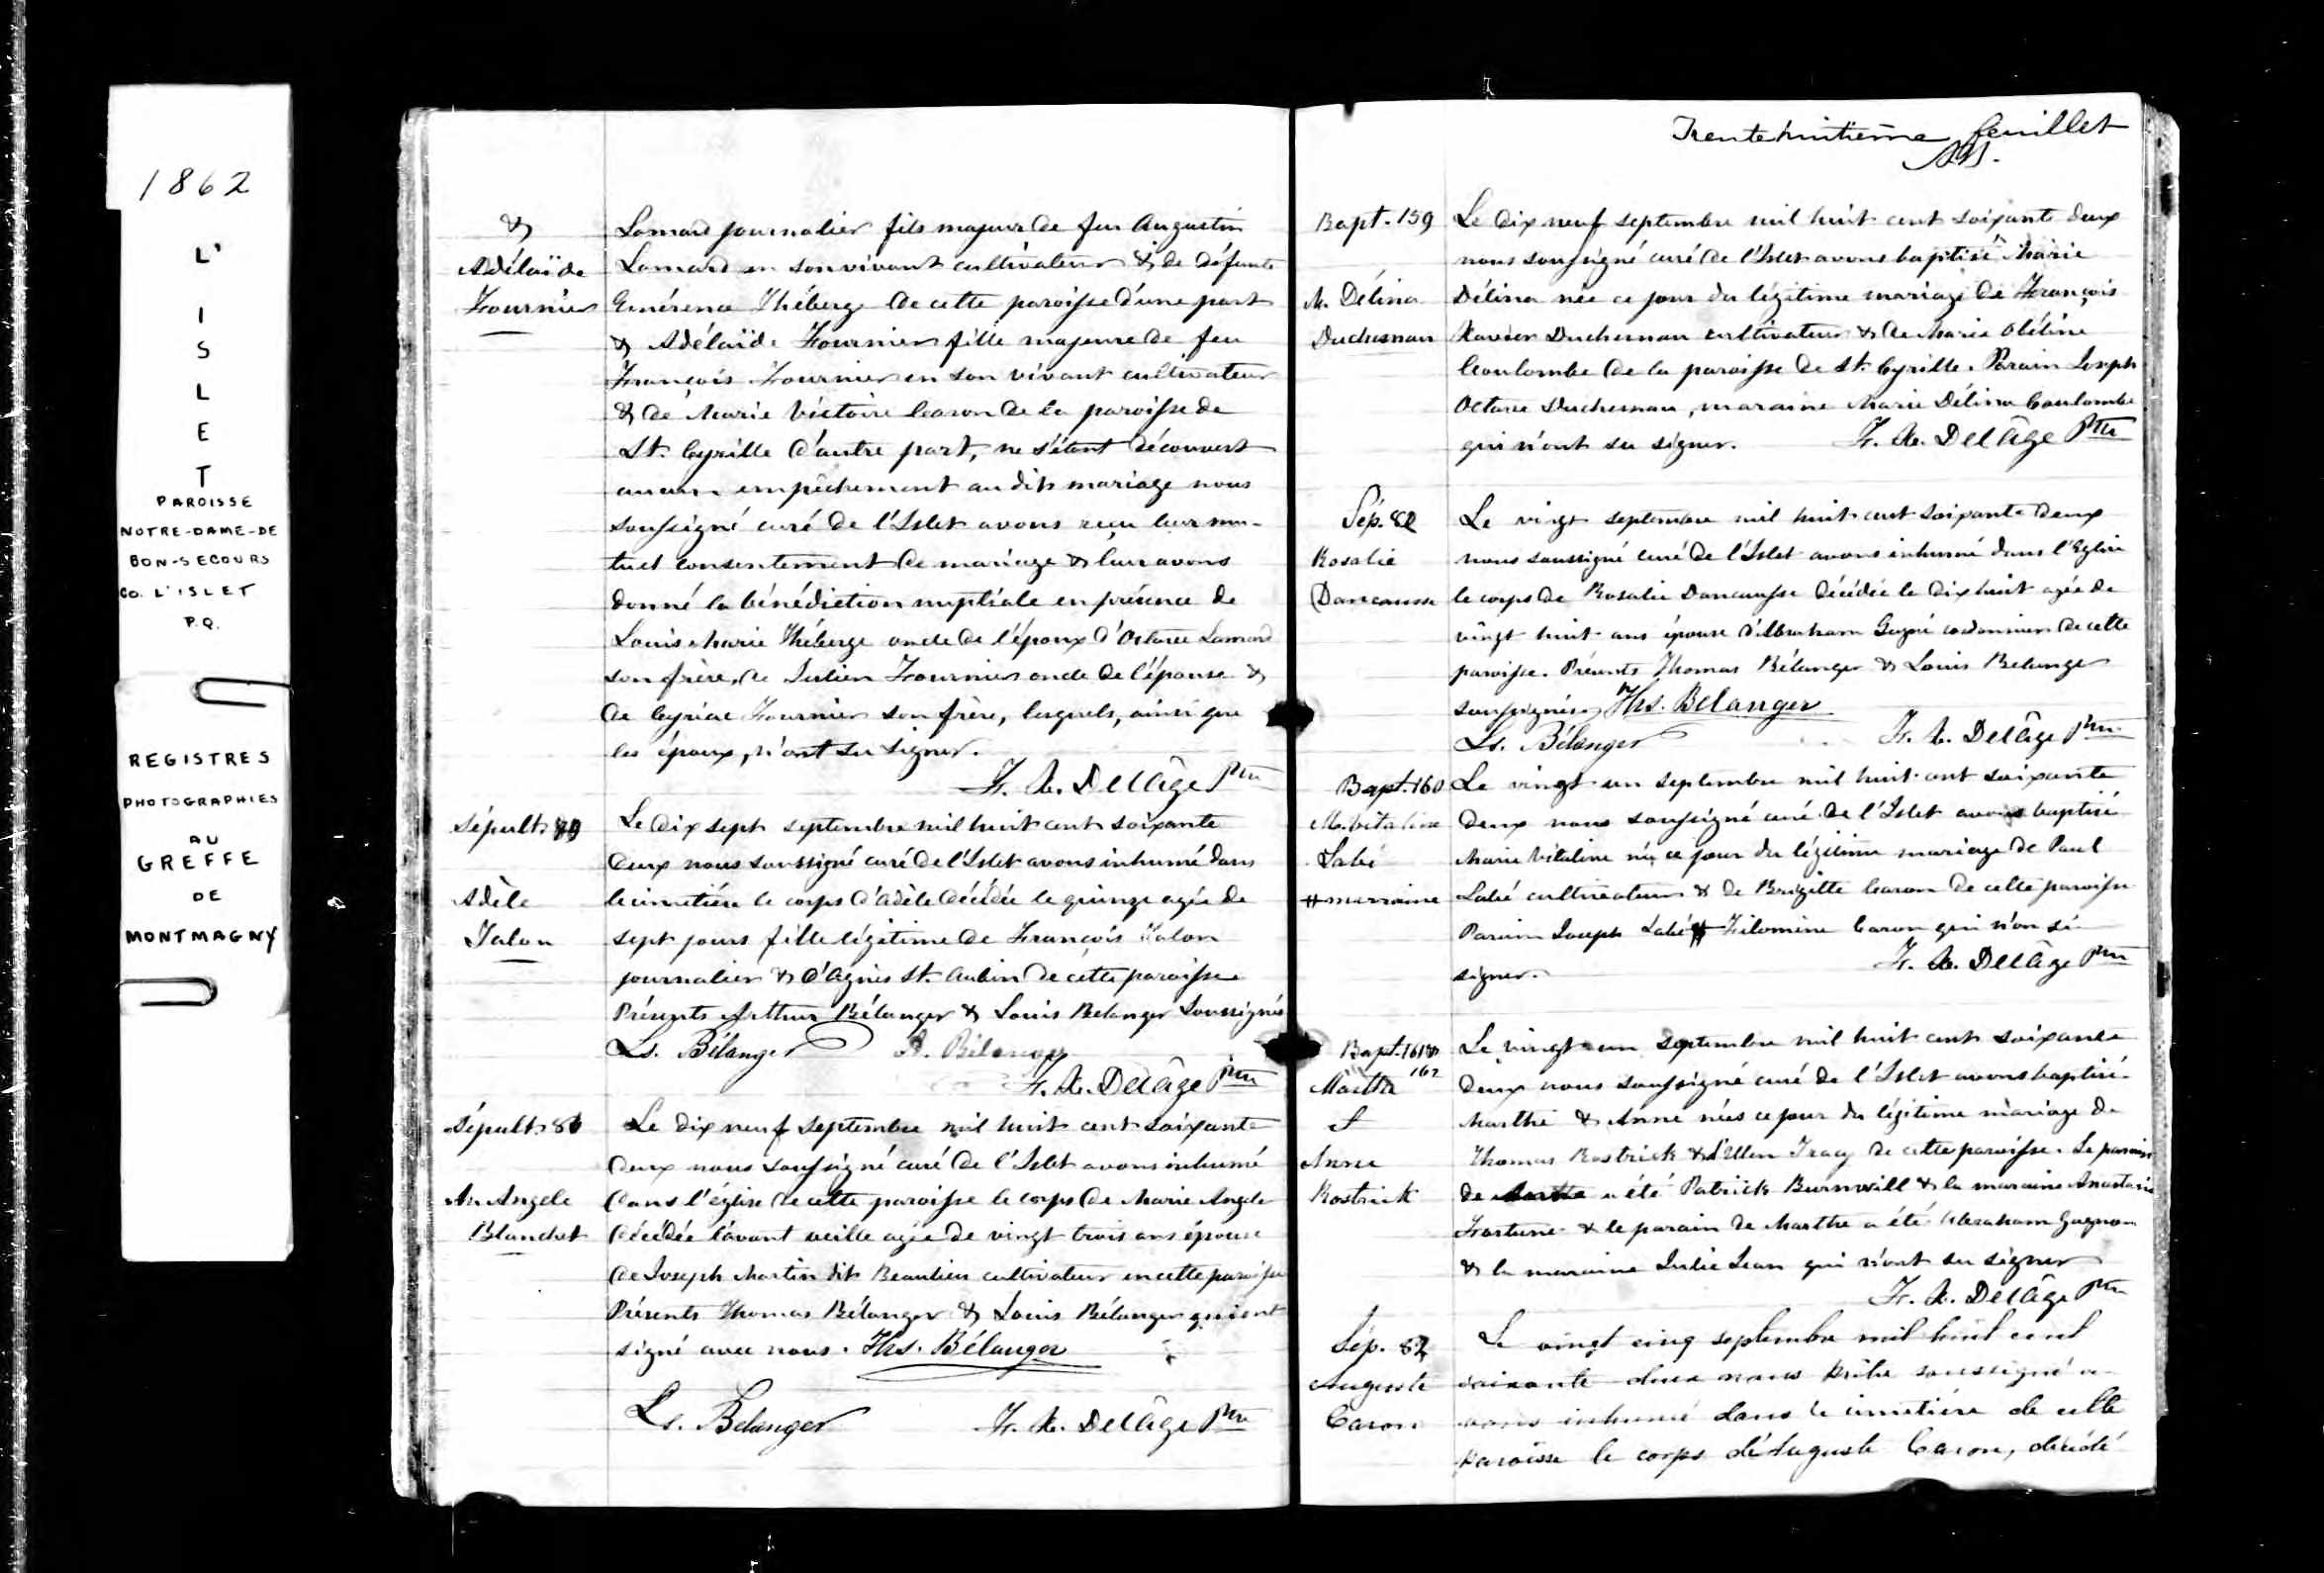 1862
L'
I
S
L
E
T
PAROISSE
NOTRE-DAME-DE
BON-SECOURS
CO. L'ISLET
P.Q.
REGISTRES
PHOTOGRAPHIES
AU
GREFFE
DE
MONTMAGNY
&
Adélaïde
Fournier
Lamard journalier fils majeur de feu Augustin
Lamard en son vivant cultivateur & de défunte
Théberge de cette paroisse d'une part
& Adélaïde Fournier fille majeure de feu
François Fournier en son vivant cultivateur
& de Marie Victoire Caron de la paroisse de
St. Cyrille d'autre part, ne s'étant découvert
aucun empêchement au dit mariage nous
soussigné curé de l'Islet avons reçu leur mu-
tuel consentement de mariage & leur avons
donné la bénédiction nuptiale en présence de
Louis Marie Théberge oncle de l'époux d'Octave Lamard
son frère, de Julien Fournier oncle de l'épouse &
de Cyriac Fournier son frère, lesquels, ainsi que
les époux, n'ont su signer.
F. X. Delâge Ptre
Sépult. 80
Adèle
Talon
Le dix sept septembre mil huit cent soixante
deux nous soussigné curé de l'Islet avons inhumé dans
le cimetière le corps d'Adèle décédée le quinze agée de
sept jours fille légitime de François Talon
journalier & d'Agnès St. Aubin de cette paroisse
Présents Arthur Bélanger & Louis Belanger Soussignés
Ls. Bélanger A. Bélanger
F. X. Delâge Ptre
Sépult. 81
M. Angele
Blanchet
Le dix neuf Septembre mil huit cent soixante
deux nous soussigné curé de l'Islet avons inhumé
dans l'église de cette paroisse le corps de Marie Angele
décédée l'avant veille agée de vingt trois ans épouse
de Joseph Martin dit Beaulieu cultivateur en cette paroisse
Présents Thomas Bélanger & Louis Bélanger qui ont
signé avec nous. Ths. Bélanger
Ls. Belanger F. X. Delâge Ptre
Trente huitième feuillet
Bapt. 159
M. Délina
Duchesneau
Le dix neuf septembre mil huit cent soixante deux
nous soussigné curé de l'Islet avons baptisé Marie
Délina née ce jour du légitime mariage de François
Xavier Duchesneau cultivateur & de Marie
Coulombe de la paroisse de St. Cyrille. Parain Joseph
Octave Duchesneau, maraine Marie Délina Coulombe
qui n'ont su signer. F. X. Delâge Ptre
Sép. 82
Rosalie
Dancausse
Le vingt septembre mil huit cent soixante deux
nous soussigné curé de l'Islet avons inhumé dans l'Eglise
le corps de Rosalie Dancausse décédée le dix huit agée de
vingt huit ans épouse d'Abraham Gagné cordonnier de cette
paroisse. Présents Thomas Bélanger & Louis Belanger
soussignés Ths. Belanger
Ls. Bélanger F. X. Delâge Ptre
Bapt. 160
M. Vitaline
Labé
# marraine
Le vingt un septembre mil huit cent soixante
deux nous soussigné curé de l'Islet avons baptisé
Marie Vitaline née ce jour du légitime mariage de Paul
Labé cultivateur & de Brigitte Caron de cette paroisse
Parain Joseph Labé # Filomène Caron qui n'on su
signer. F. X. Delâge Ptre
Bapt. 161 &
162
Martha
&
Anne
Rostrick
Le vingt un septembre mil huit cent soixante
deux nous soussigné curé de l'Islet avons baptisé
Marthe & Anne nées ce jour du légitime mariage de
Thomas Rostrick & d'Ellen Tracy de cette paroisse. Le parain
de a été Patrick Burnwill & la maraine Anastasie
Fortune & le parain de Marthe a été Abraham Gagnon
& la maraine Julie Jean qui n'ont su signer
F. X. Delâge Ptre
Sép. 83
Auguste
Caron
Le vingt cinq septembre mil huit cent
soixante deux nous prêtre soussigné a-
vons inhumé dans le cimetière de cette
paroisse le corps d'Auguste Caron, décédé